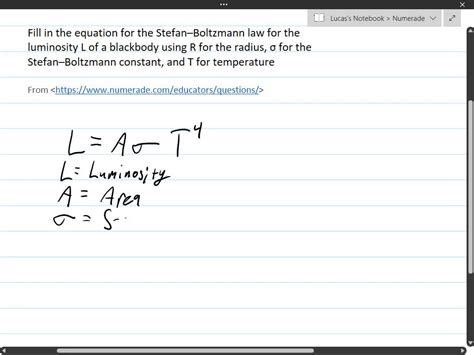 Lucas's Notebook > Numerade
Fill in the equation for the Stefan–Boltzmann law for the
luminosity L of a blackbody using R for the radius, σ for the
Stefan–Boltzmann constant, and T for temperature
From <https://www.numerade.com/educators/questions/>
L = A σ T⁴
L = Luminosity
A = Area
σ = S